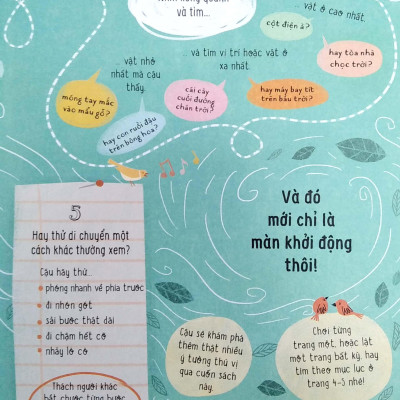 và tìm...
... vật ở
cao nhất.
cột điện à?
... vật nhỏ
nhất mà cậu
thấy.
... và tìm vị trí hoặc vật ở
xa nhất.
hay tòa nhà
chọc trời?
móng tay mắc
vào mẩu gỗ?
hay con ruồi đậu
trên bông hoa?
cái cây
cuối đường
chân trời?
hay máy bay tít
trên bầu trời?
5
Hay thử di chuyển một
cách khác thường xem?
Cậu hãy thử...
phóng nhanh về phía trước
đi nhón gót
sải bước thật dài
đi chậm hết cỡ
nhảy lò cò
Thách người khác
bắt chước từng bước
Và đó
mới chỉ là
màn khởi động
thôi!
Cậu sẽ khám phá
thêm thật nhiều
ý tưởng thú vị
qua cuốn sách
này.
Chơi từng
trang một, hoặc lật
một trang bất kỳ, hay
tìm theo mục lục ở
trang 4-5 nhé!